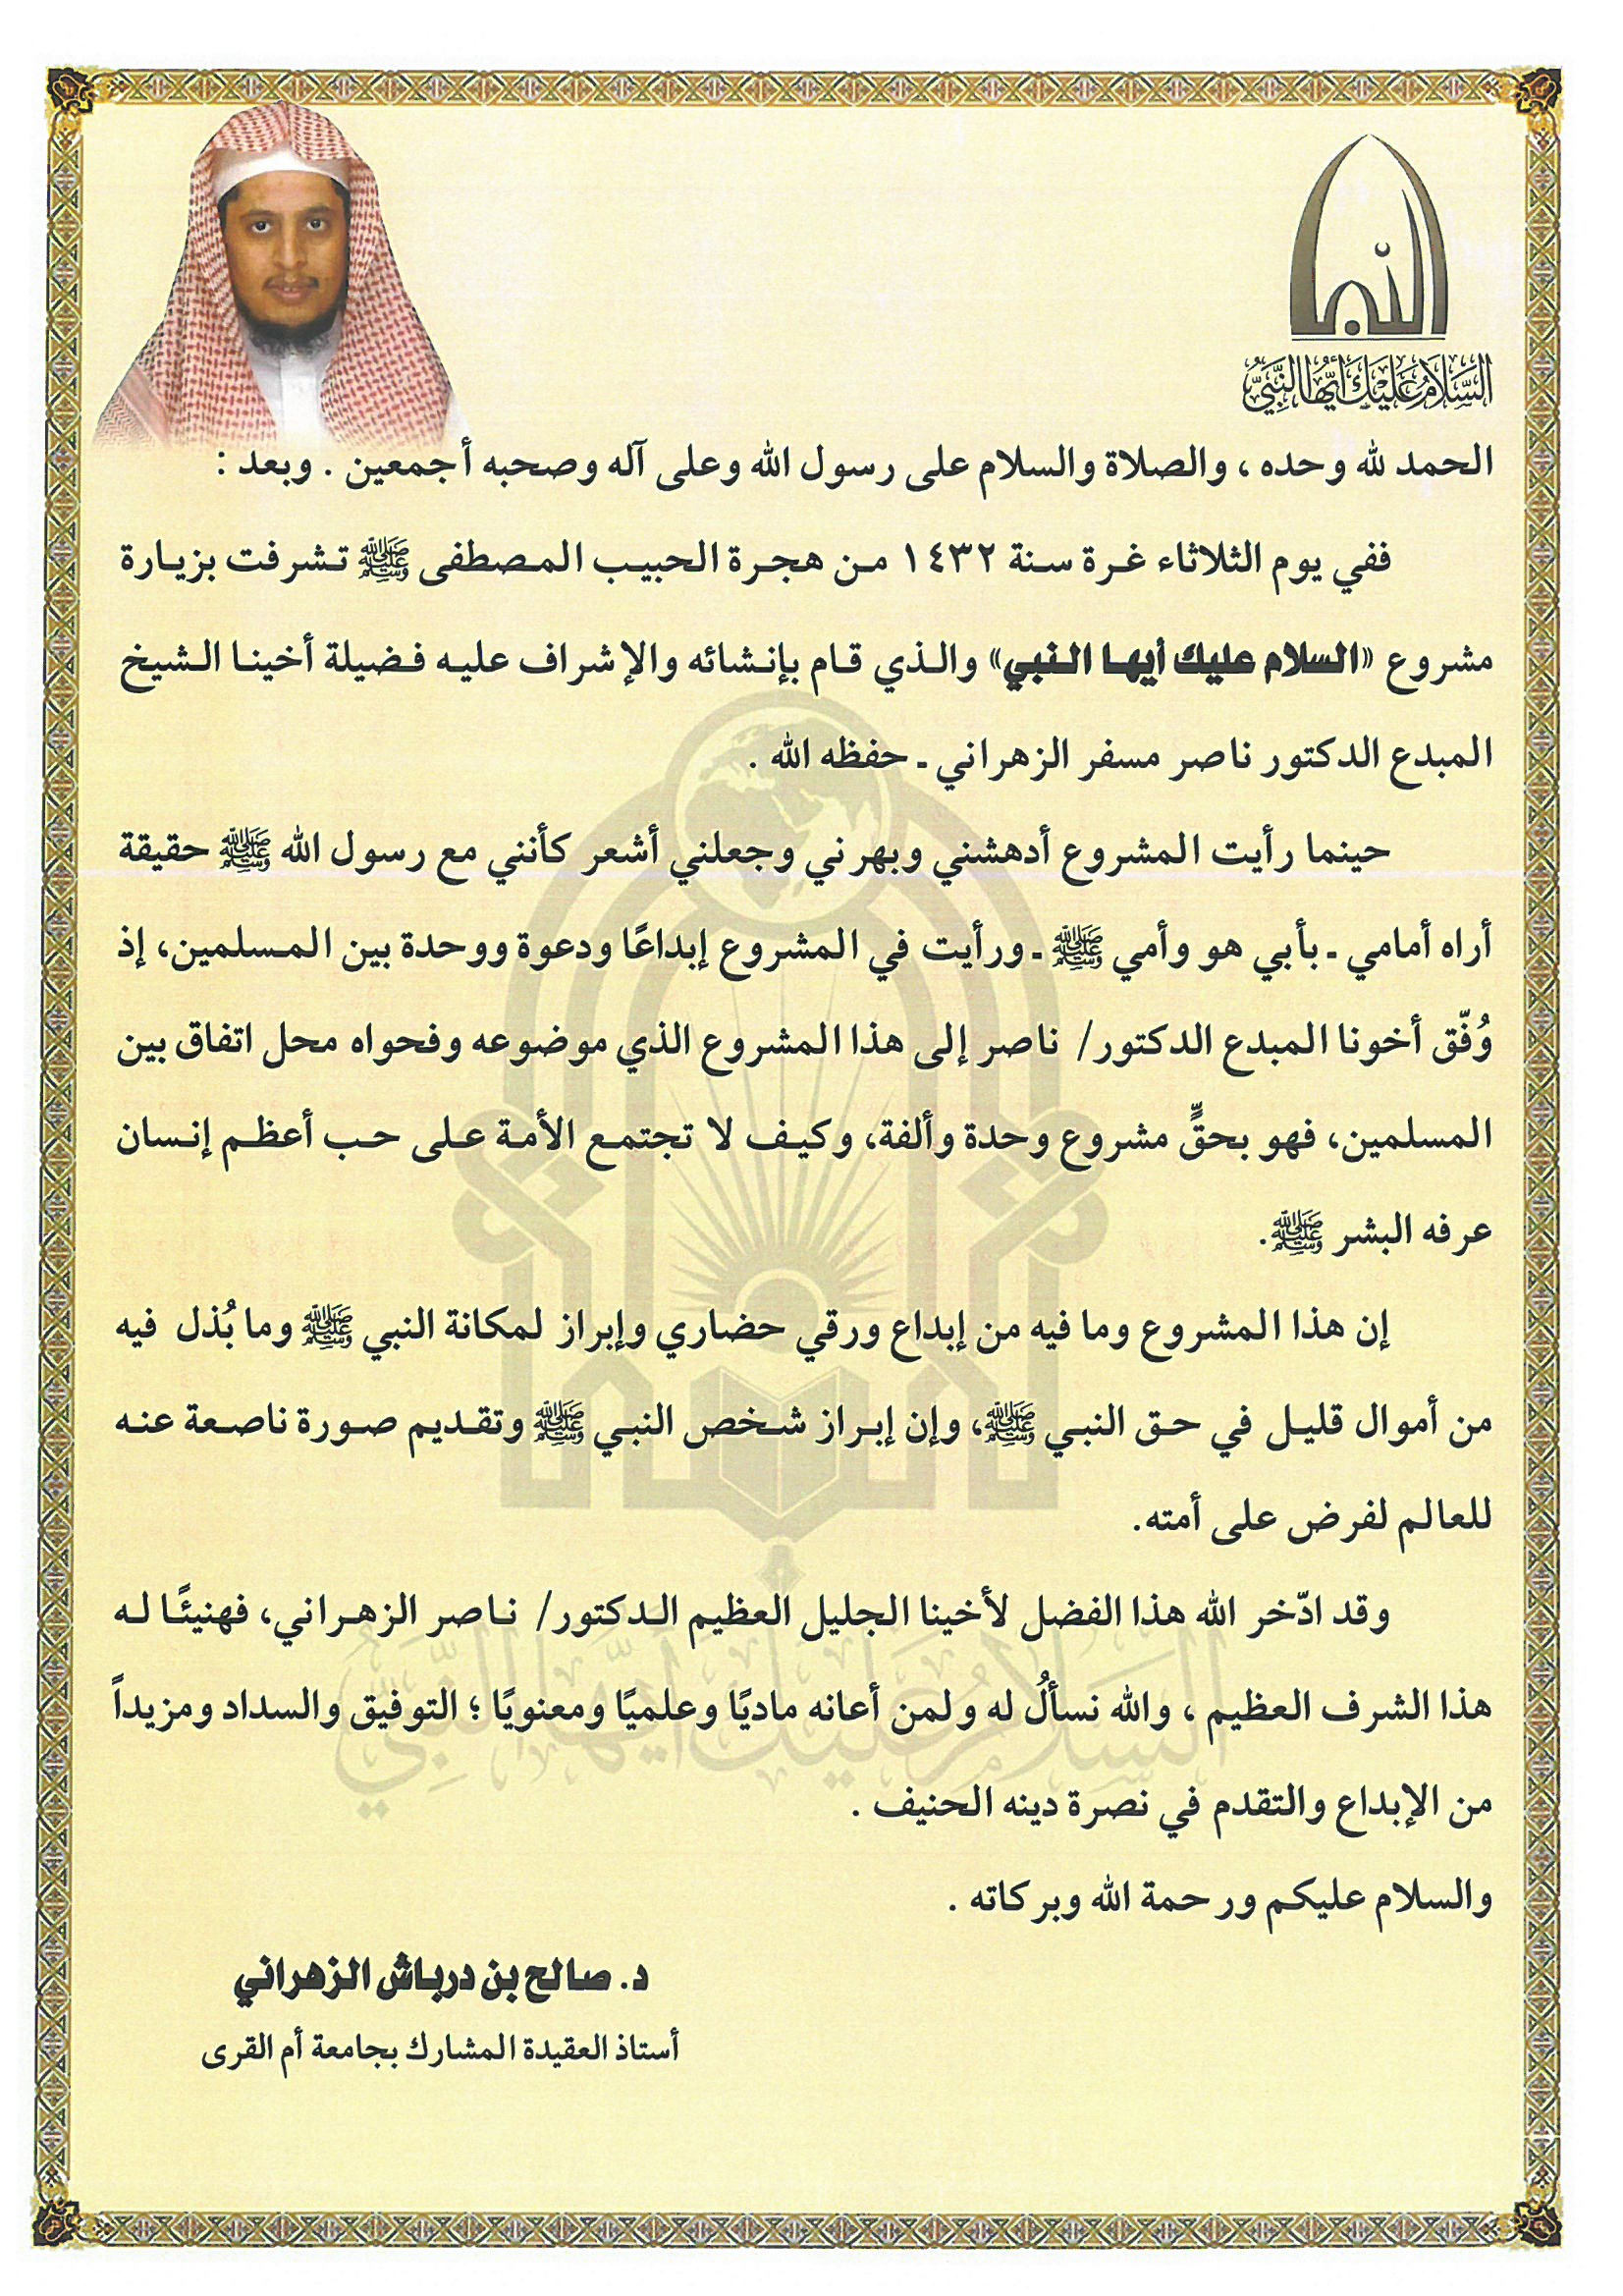 السَّلَامُ عَلَيْكَ أَيُّهَا النَّبِيُّ
الحمد لله وحده ، والصلاة والسلام على رسول الله وعلى آله وصحبه أجمعين . وبعد :
ففي يوم الثلاثاء غرة سنة ١٤٣٢ من هجرة الحبيب المصطفى ﷺ تشرفت بزيارة
مشروع «السلام عليك أيها النبي» والذي قام بإنشائه والإشراف عليه فضيلة أخينا الشيخ
المبدع الدكتور ناصر مسفر الزهراني ـ حفظه الله .
حينما رأيت المشروع أدهشني وبهرني وجعلني أشعر كأنني مع رسول الله ﷺ حقيقة
أراه أمامي ـ بأبي هو وأمي ﷺ ـ ورأيت في المشروع إبداعًا ودعوة ووحدة بين المسلمين، إذ
وُفّق أخونا المبدع الدكتور/ ناصر إلى هذا المشروع الذي موضوعه وفحواه محل اتفاق بين
المسلمين، فهو بحقٍّ مشروع وحدة وألفة، وكيف لا تجتمع الأمة على حب أعظم إنسان
عرفه البشر ﷺ.
إن هذا المشروع وما فيه من إبداع ورقي حضاري وإبراز لمكانة النبي ﷺ وما بُذل فيه
من أموال قليل في حق النبي ﷺ، وإن إبراز شخص النبي ﷺ وتقديم صورة ناصعة عنه
للعالم لفرض على أمته.
وقد ادّخر الله هذا الفضل لأخينا الجليل العظيم الدكتور/ ناصر الزهراني، فهنيئًا له
هذا الشرف العظيم ، والله نسألُ له ولمن أعانه ماديًا وعلميًا ومعنويًا ؛ التوفيق والسداد ومزيداً
من الإبداع والتقدم في نصرة دينه الحنيف .
والسلام عليكم ورحمة الله وبركاته .
د. صالح بن درباش الزهراني
أستاذ العقيدة المشارك بجامعة أم القرى